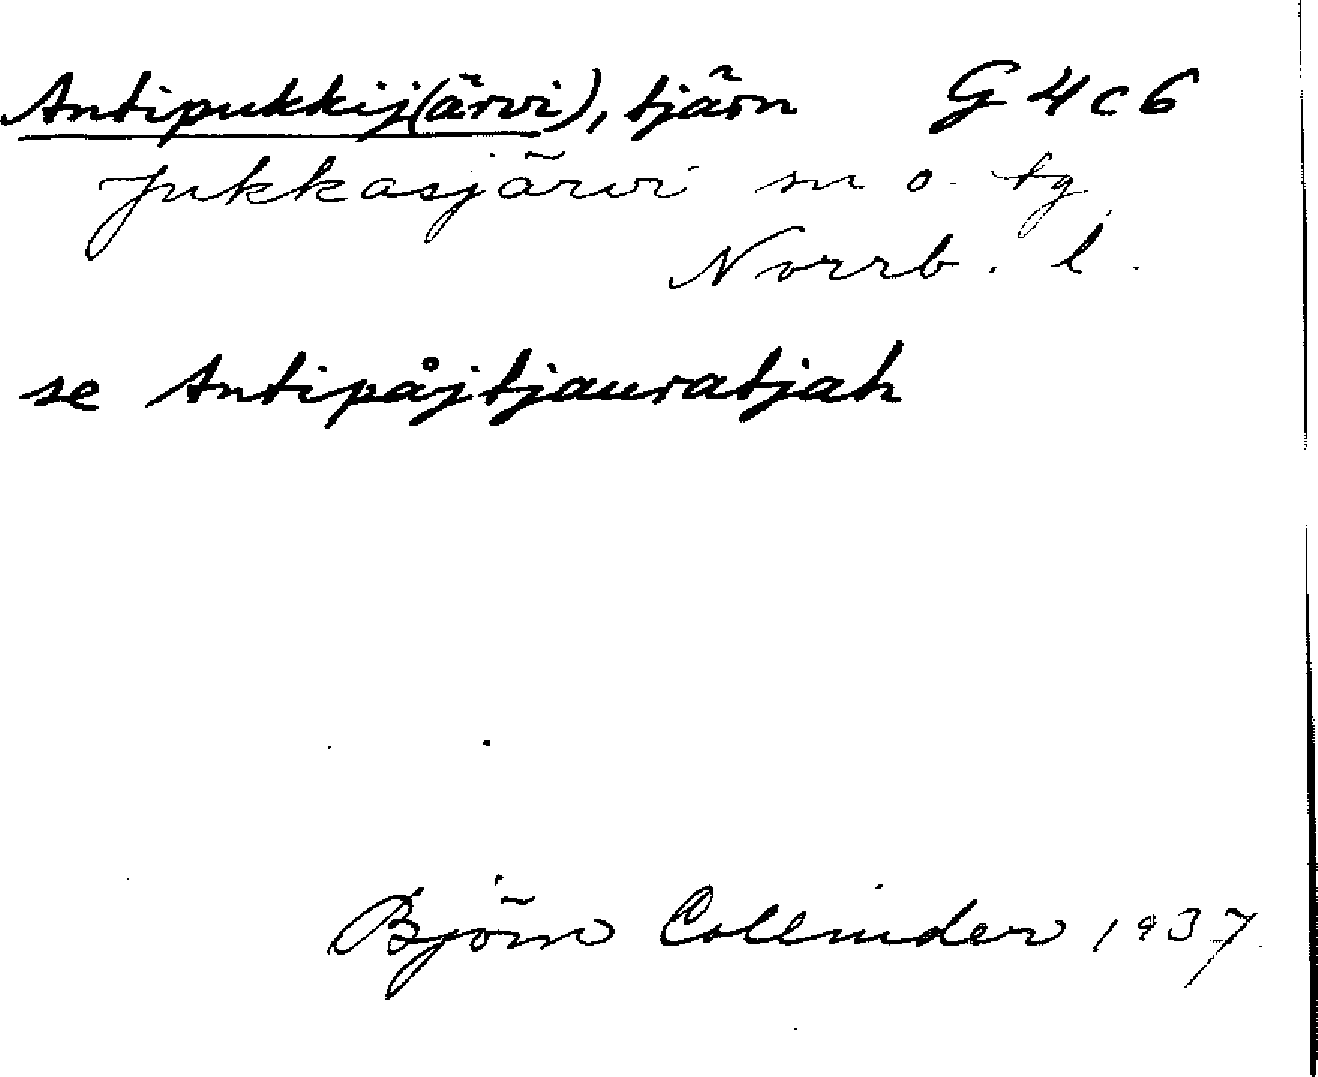 Antipukkij(ärvi), tjärn G 4 c 6
Jukkasjärvi sn o. tg
Norrb. l.
se Antipåjtjauratjah
Björn Collinder 1937